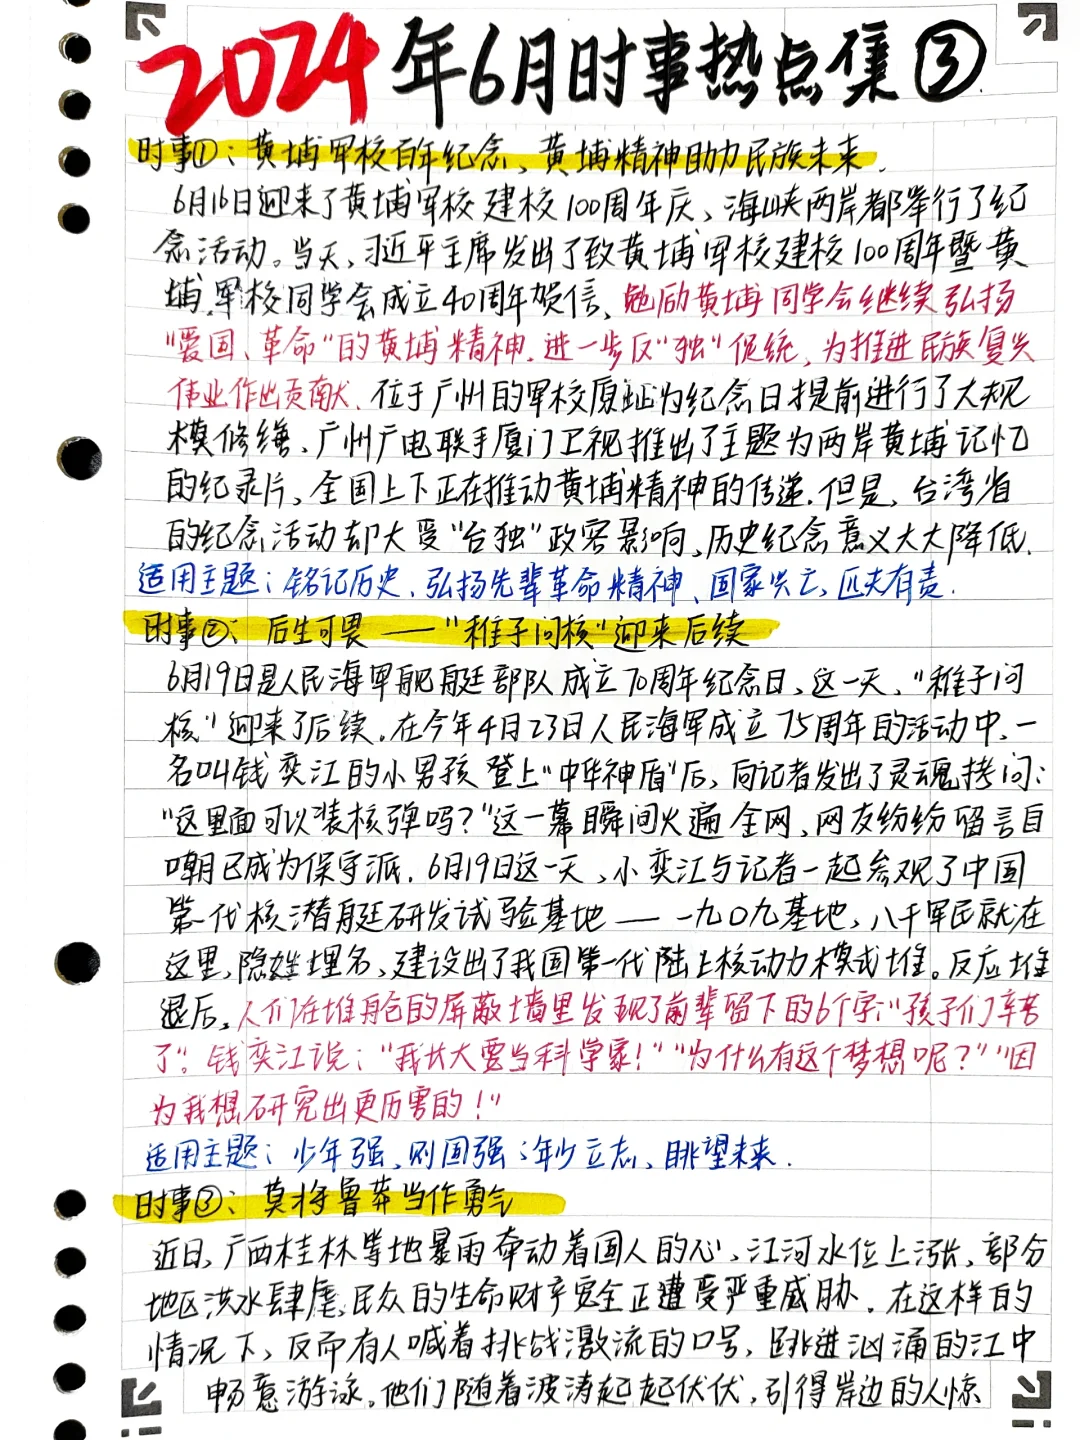 2024年6月时事热点集③
时事①：黄埔军校百年纪念、黄埔精神助力民族未来.
6月16日迎来了黄埔军校建校100周年庆、海峡两岸都举行了纪
念活动。当天、习近平主席发出了致黄埔军校建校100周年暨黄
埔军校同学会成立40周年贺信、勉励黄埔同学会继续弘扬
“爱国、革命”的黄埔精神.进一步反“独”促统、为推进民族复兴
伟业作出贡献、位于广州的军校原址为纪念日提前进行了大规
模修缮、广州广电联手厦门卫视推出了主题为两岸黄埔记忆
的纪录片，全国上下正在推动黄埔精神的传递.但是、台湾省
的纪念活动却大受“台独”政客影响、历史纪念意义大大降低.
适用主题：铭记历史、弘扬先辈革命精神、国家兴亡，匹夫有责.
时事②：后生可畏——“稚子问核”迎来后续
6月19日是人民海军舰艇部队成立70周年纪念日、这一天、“稚子问
核”迎来了后续.在今年4月23日人民海军成立75周年的活动中、一
名叫钱奕江的小男孩登上“中华神盾”后，向记者发出了灵魂拷问：
“这里面可以装核弹吗？”这一幕瞬间火遍全网，网友纷纷留言自
嘲已成为保守派.6月19日这一天、小奕江与记者一起参观了中国
第一代核潜艇研发试验基地——一九〇九基地，八千军民就在
这里，隐姓埋名，建设出了我国第一代陆上核动力模式堆。反应堆
退后，人们在堆舱的屏蔽墙里发现了前辈留下的6个字:“孩子们辛苦
了”。钱奕江说：“我长大要当科学家！”“为什么有这个梦想呢？”“因
为我想研究出更厉害的！”
适用主题：少年强、则国强；年少立志、眺望未来.
时事③：莫将鲁莽当作勇气
近日，广西桂林等地暴雨牵动着国人的心，江河水位上涨，部分
地区洪水肆虐，民众的生命财产安全正遭受严重威胁.在这样的
情况下，反而有人喊着挑战激流的口号，跳进汹涌的江中
畅意游泳。他们随着波涛起起伏伏，引得岸边的人惊